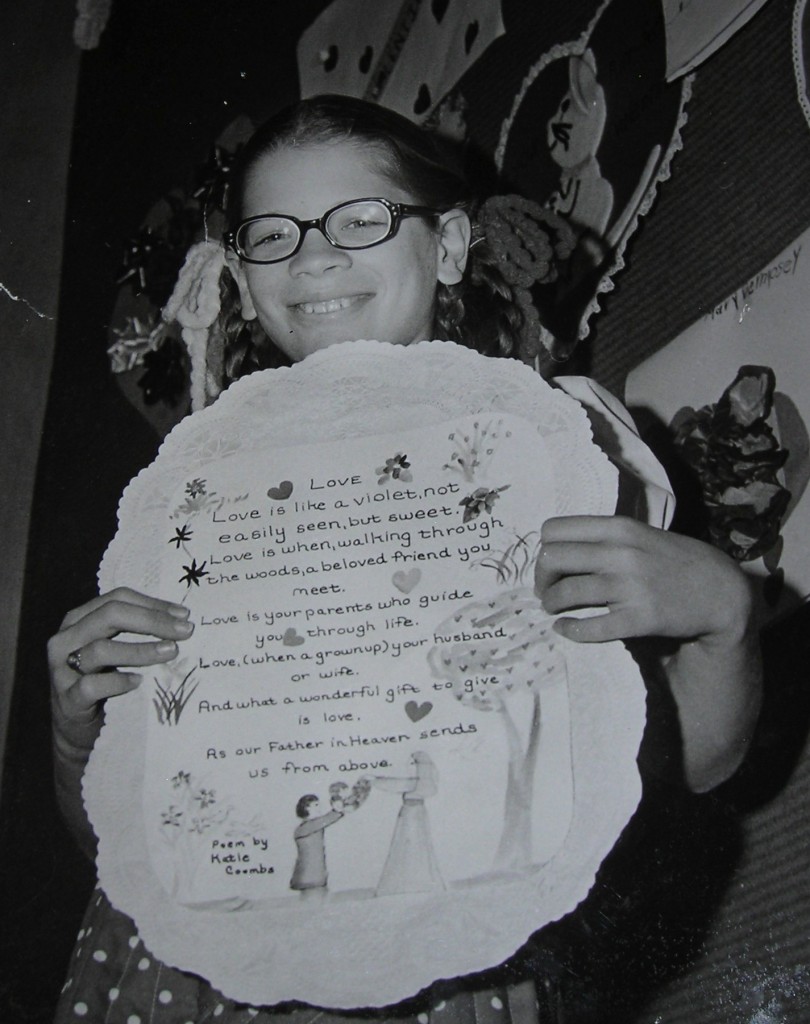 Mary Dempsey
Love
Love is like a violet, not
easily seen, but sweet.
Love is when, walking through
the woods, a beloved friend you
meet.
Love is your parents who guide
you through life.
Love, (when a grownup) your husband
or wife.
And what a wonderful gift to give
is love.
As our Father in Heaven sends
us from above.
Poem by
Katie
Coombs